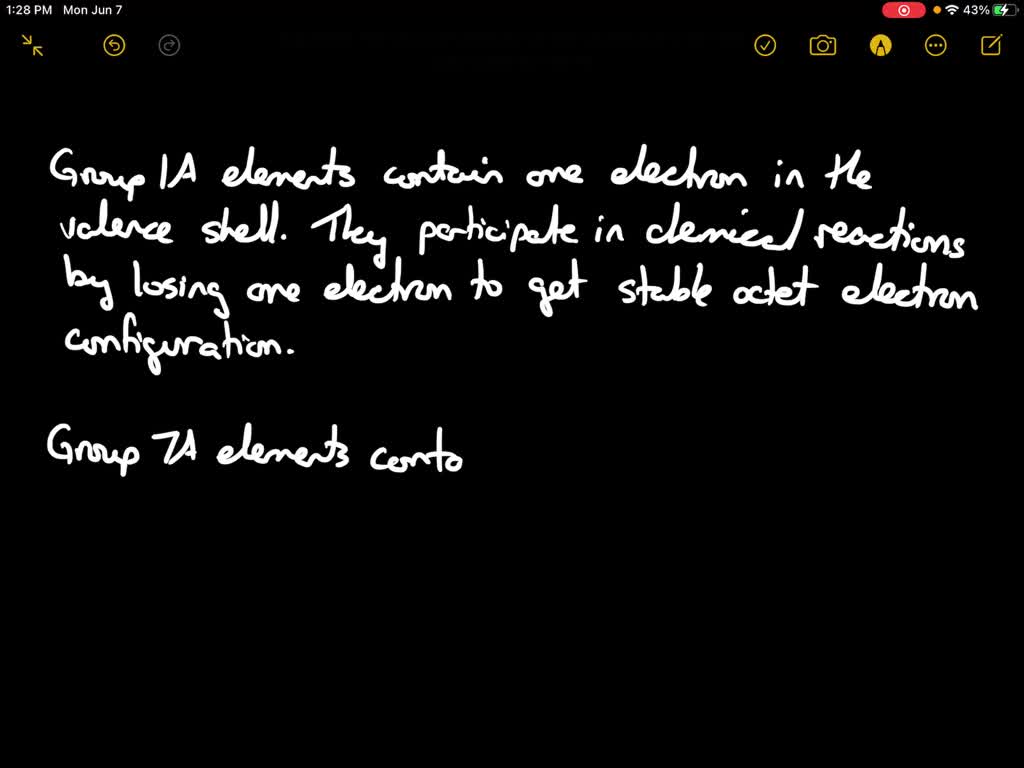 1:28 PM Mon Jun 7 43%
Group 1A elements contain one electron in the
valence shell. They participate in chemical reactions
by losing one electron to get stable octet electron
configuration.
Group 7A elements conta